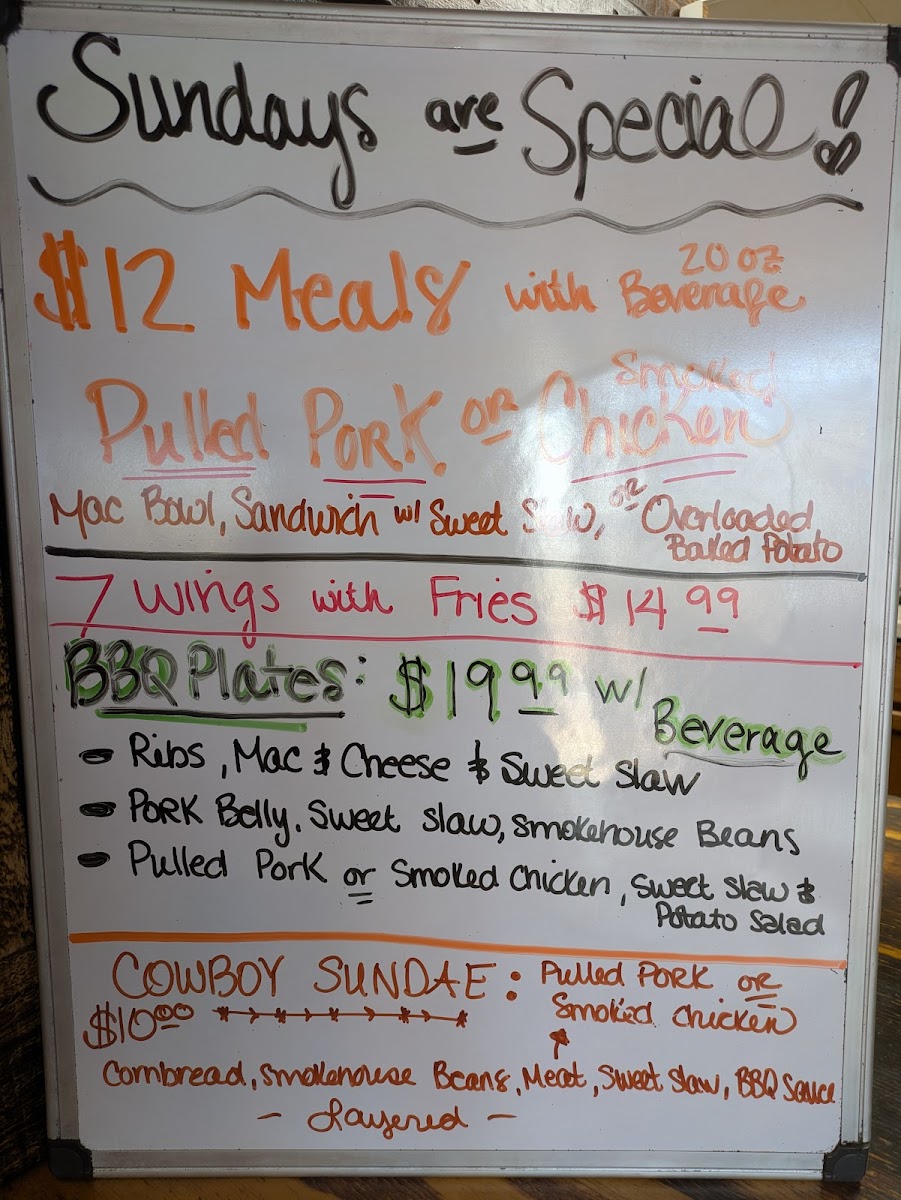 Sundays are Special!
$12 Meals with 20 oz Beverage
Pulled Pork or Smoked Chicken
Mac Bowl, Sandwich w/ Sweet Slaw, or Overloaded
Baked Potato
7 wings with Fries $14.99
BBQ Plates: $19.99 w/ Beverage
- Ribs, Mac & Cheese & Sweet Slaw
- Pork Belly, Sweet slaw, smokehouse Beans
- Pulled Pork or Smoked Chicken, sweet slaw &
Potato Salad
COWBOY SUNDAE: Pulled Pork or
$10.00 Smoked Chicken
Cornbread, Smokehouse Beans, Meat, Sweet Slaw, BBQ Sauce
- Layered -